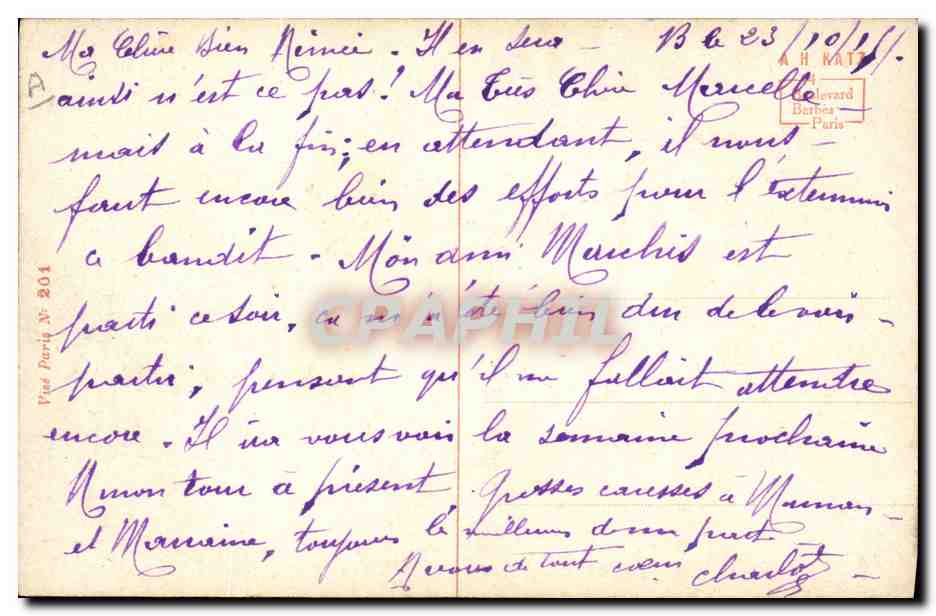 Ma Chère Bien Aimée - Il en sera - B le 23/10/15/.
A
A H KATZ
Boulevard
Barbès
Paris
ainsi n'est ce pas! Ma Très Chère Marcelle -
mais à la fin; en attendant, il nous -
faut encore bien des efforts pour l'exterminer
ce bandit - Mon ami Marchis est
parti ce soir, ça m'a été bien dur de le voir -
CPAPHIL
partir, pensant qu'il me fallait attendre
encore - Il ira vous voir la semaine prochaine
A mon tour à présent Grosses caresses à Maman -
et Marraine, toujours le meilleures de ma part
A vous de tout cœur Charlot -
Visé Paris No 201